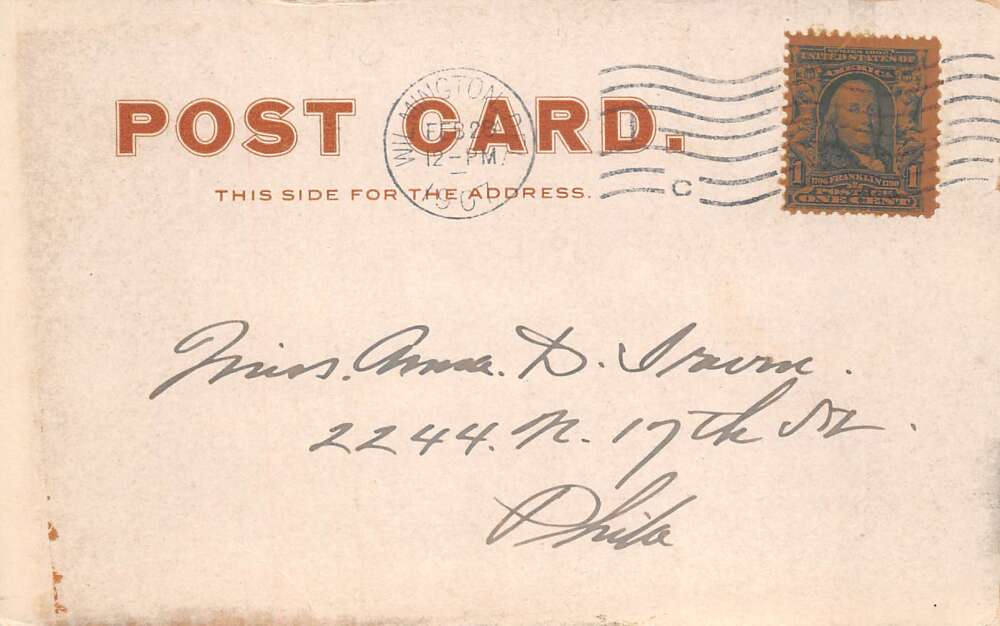 POST CARD.
THIS SIDE FOR THE ADDRESS.
WILMINGTON
FEB 28
12-PM
190
C
SERIES 1902
UNITED STATES OF
AMERICA
1 1706 FRANKLIN 1790 1
POSTAGE
ONE CENT
Miss. Anna. D.
2244. N. 17th St.
Phila